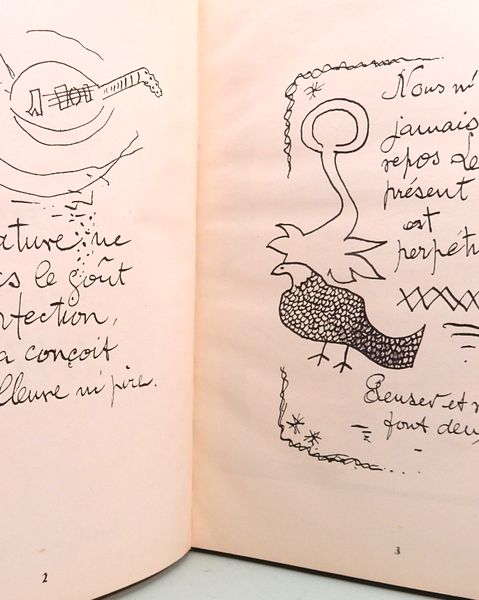 ature ne
s le goût
rfection,
a conçoit
lleure ni pire.
2
Nous n'
jamais
repos Le
présent
est
perpétu
Penser et r
font deu
3